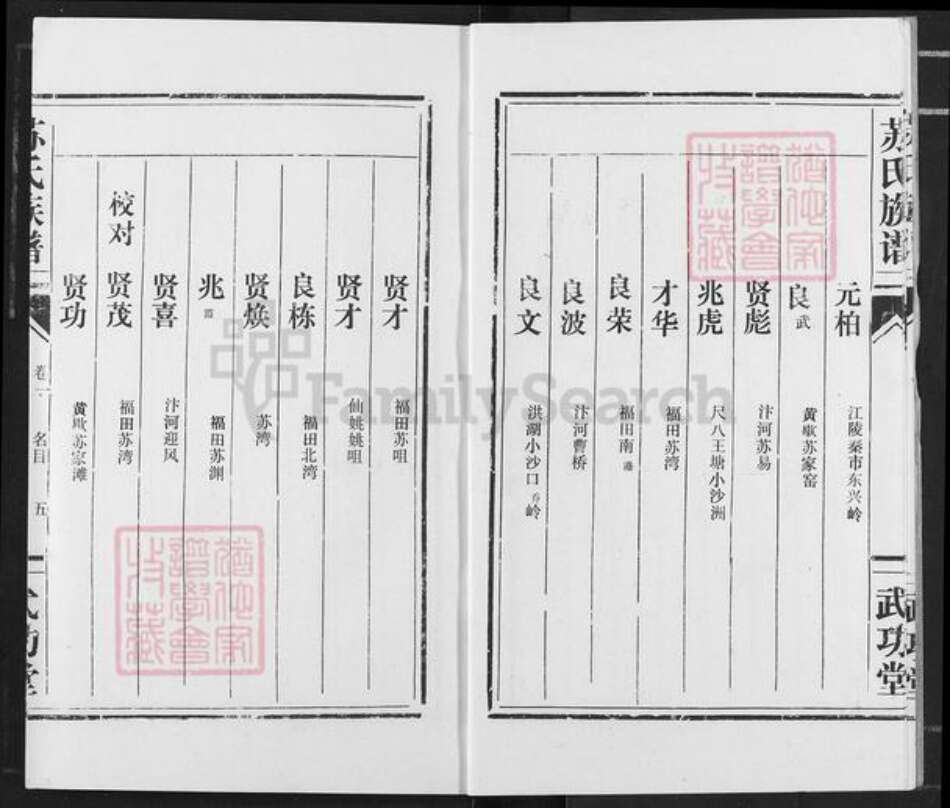 苏氏族谱
武功堂
元柏 江陵秦市东兴岭
良武 黄歇苏家窑
贤彪 汴河苏易
兆虎 尺八王塘小沙洲
才华 福田苏湾
良荣 福田南港
良波 汴河曹桥
良文 洪湖小沙口乔岭
贤才 福田苏咀
贤才 仙姚姚咀
良栋 福田北湾
贤焕 苏湾
兆 福田苏渊
贤喜 汴河迎风
校对 贤茂 福田苏湾
贤功 黄歇苏家滩
苏氏族谱
卷一 名目 五
武功堂
FamilySearch